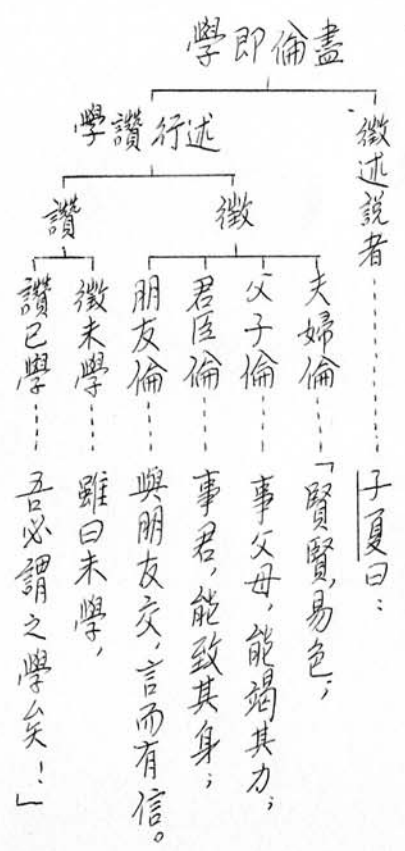 盡倫即學
徵述說者……子夏曰：
述行讚學
徵
夫婦倫……「賢賢，易色；
父子倫……事父母，能竭其力；
君臣倫……事君，能致其身；
朋友倫……與朋友交，言而有信。
讚
徵未學……雖曰未學，
讚已學……吾必謂之學矣！」